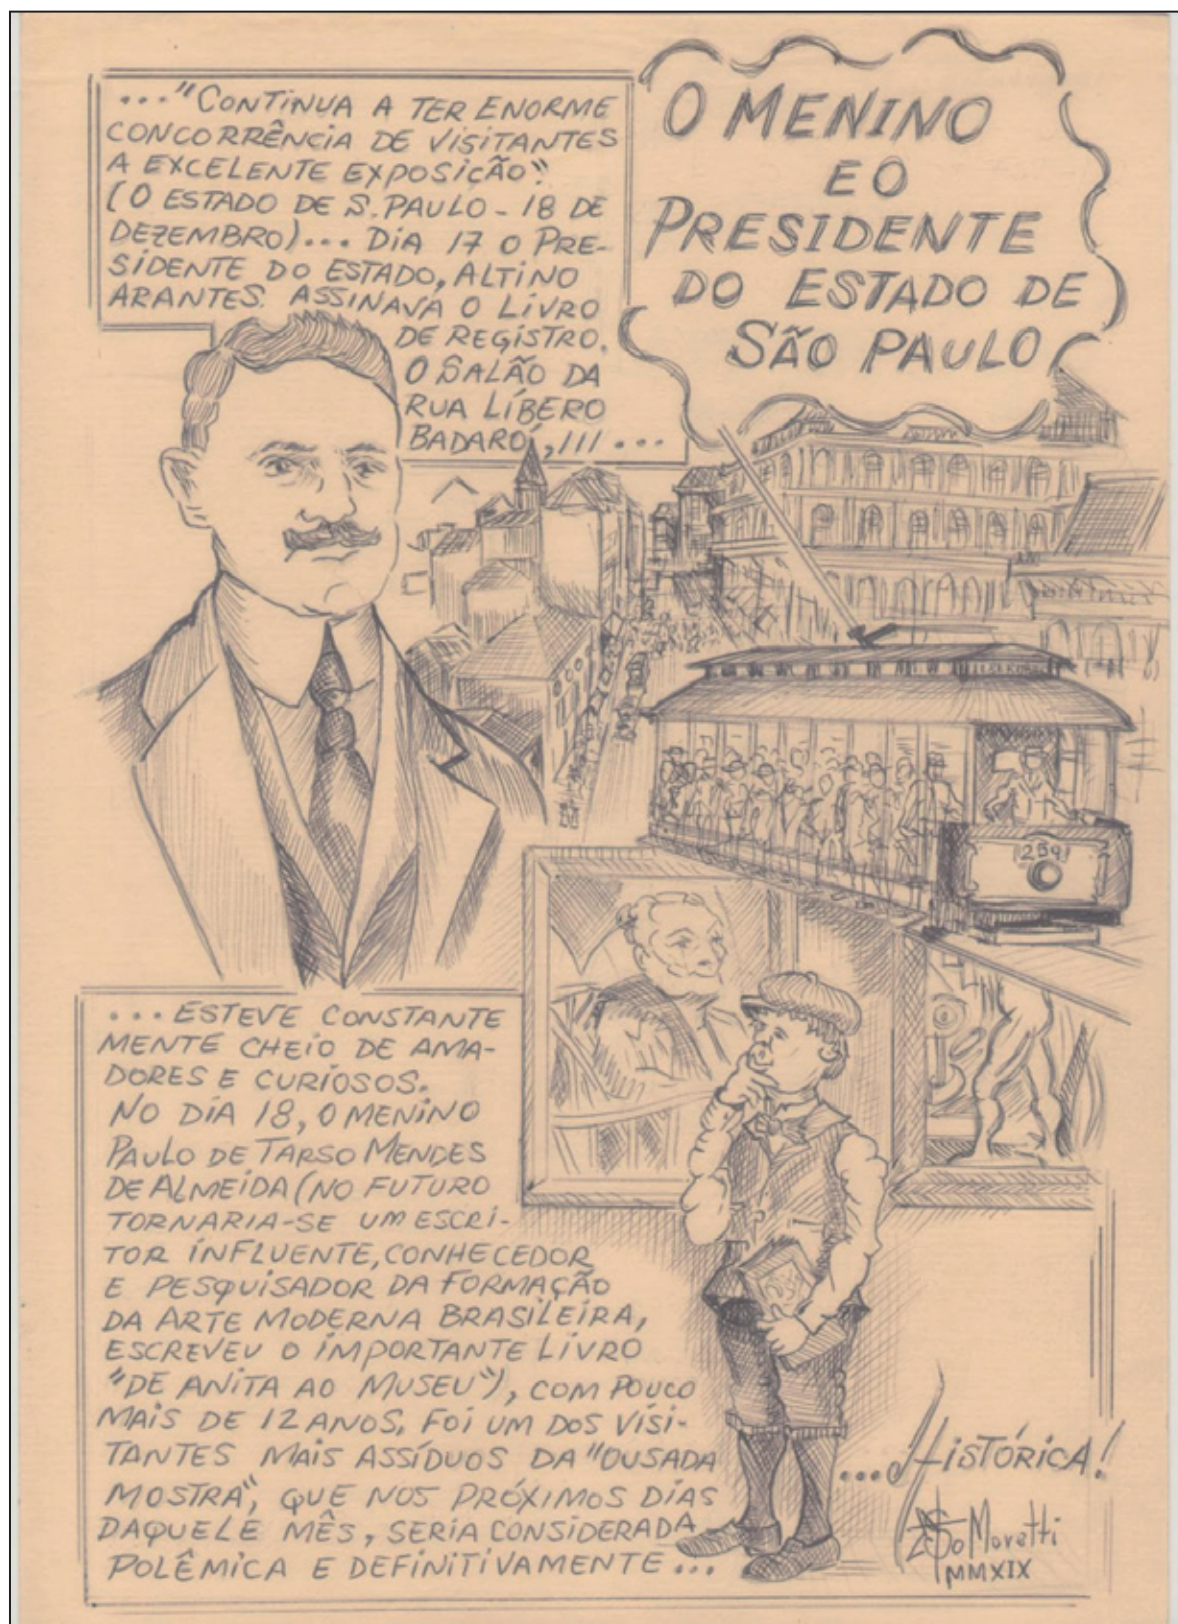 ..."CONTINUA A TER ENORME
CONCORRÊNCIA DE VISITANTES
A EXCELENTE EXPOSIÇÃO".
(O ESTADO DE S. PAULO - 18 DE
DEZEMBRO)... DIA 17 O PRE-
SIDENTE DO ESTADO, ALTINO
ARANTES. ASSINAVA O LIVRO
DE REGISTRO.
O SALÃO DA
RUA LÍBERO
BADARÓ, 111 ...
O MENINO
E O
PRESIDENTE
DO ESTADO DE
SÃO PAULO
259
...ESTEVE CONSTANTE
MENTE CHEIO DE AMA-
DORES E CURIOSOS.
NO DIA 18, O MENINO
PAULO DE TARSO MENDES
DE ALMEIDA (NO FUTURO
TORNARIA-SE UM ESCRI-
TOR INFLUENTE, CONHECEDOR
E PESQUISADOR DA FORMAÇÃO
DA ARTE MODERNA BRASILEIRA,
ESCREVEU O IMPORTANTE LIVRO
"DE ANITA AO MUSEU"), COM POUCO
MAIS DE 12 ANOS, FOI UM DOS VISI-
TANTES MAIS ASSÍDUOS DA "OUSADA
MOSTRA", QUE NOS PRÓXIMOS DIAS
DAQUELE MÊS, SERIA CONSIDERADA
POLÊMICA E DEFINITIVAMENTE...
...HISTÓRICA!
Moretti
MMXIX